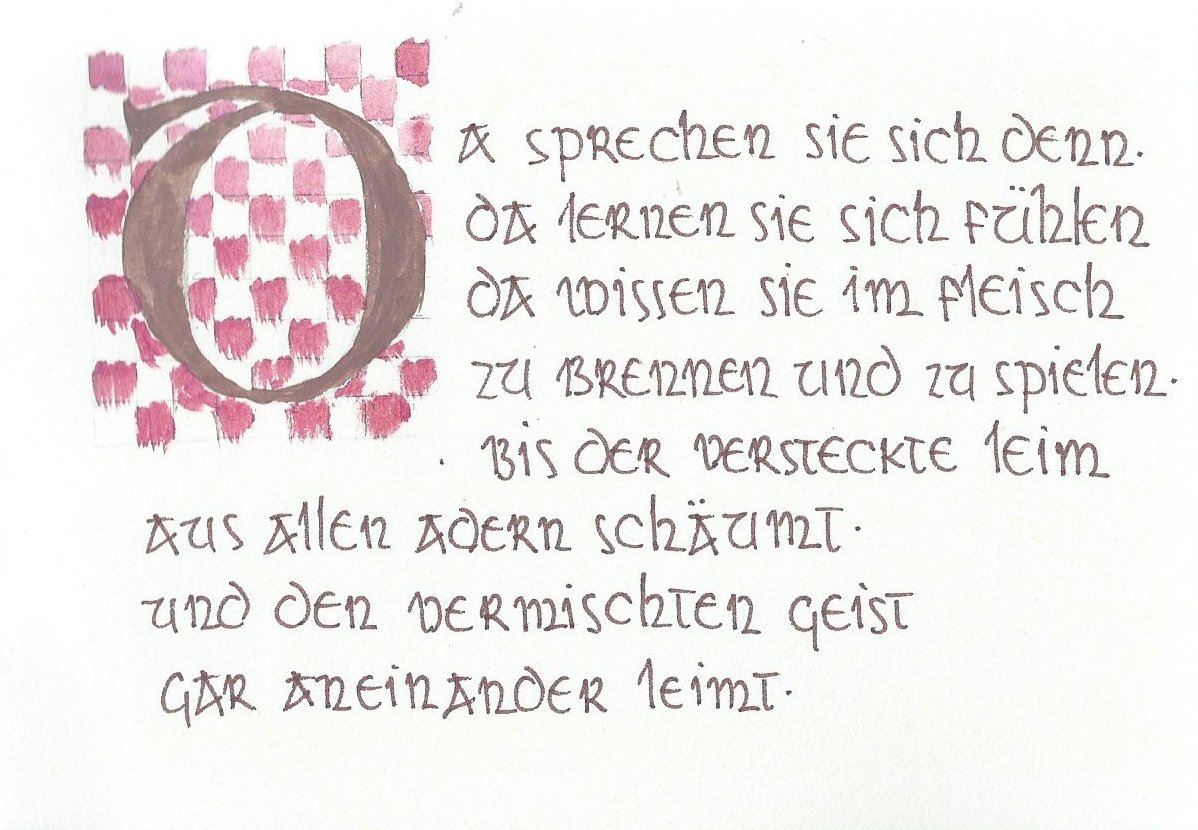 Da sprechen sie sich denn.
da lernen sie sich fühlen
da wissen sie im fleisch
zu brennen und zu spielen.
bis der versteckte leim
aus allen adern schäumt.
und den vermischten geist
gar aneinander leimt.